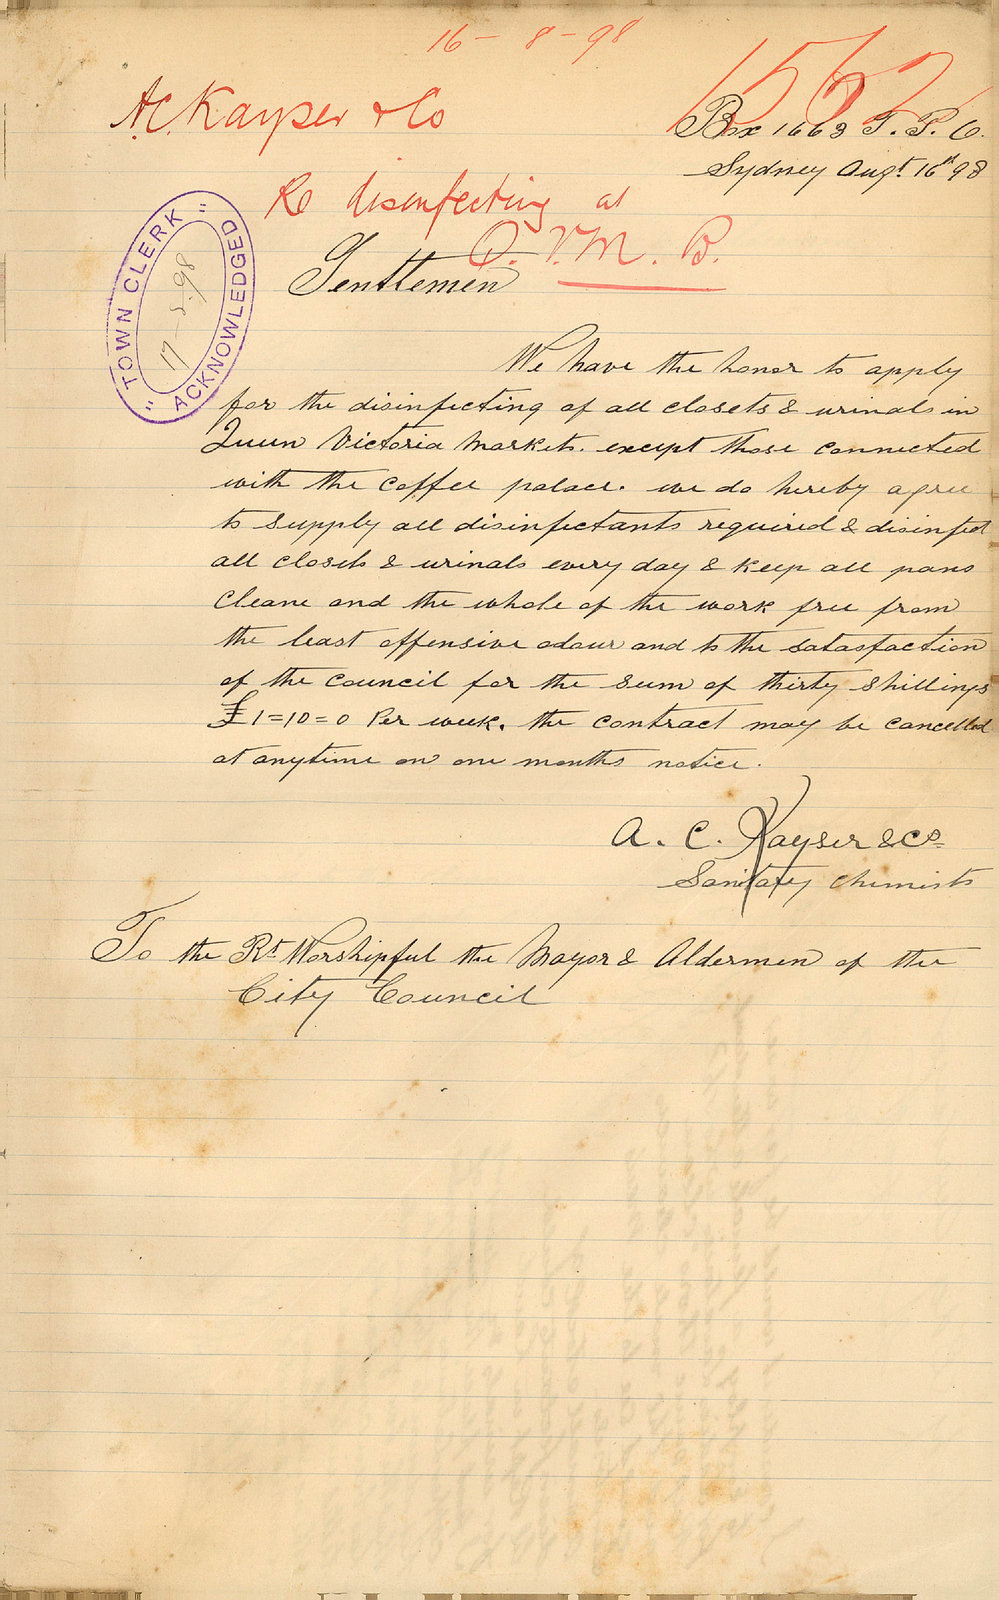 16 - 8 - 98
1562
A.C. Kayser & Co
Box 1663 G. P. O.
Sydney Augt. 16th 98
Re disinfecting at
Q. V. M. B.
"TOWN CLERK"
17-8-98
ACKNOWLEDGED
Gentlemen
We have the honor to apply
for the disinfecting of all closets & urinals in
Queen Victoria Markets. except those connected
with the coffee palace. we do hereby agree
to supply all disinfectants required & disinfect
all closets & urinals every day & keep all pans
cleane and the whole of the work free from
the least offensive odour and to the satasfaction
of the council for the sum of thirty shillings
£1=10=0 Per week. the contract may be cancelled
at anytime on one months notice.
A. C. Kayser & Co.
Sanitary Chemists
To the Rt Worshipful the Mayor & Aldermen of the
City Council